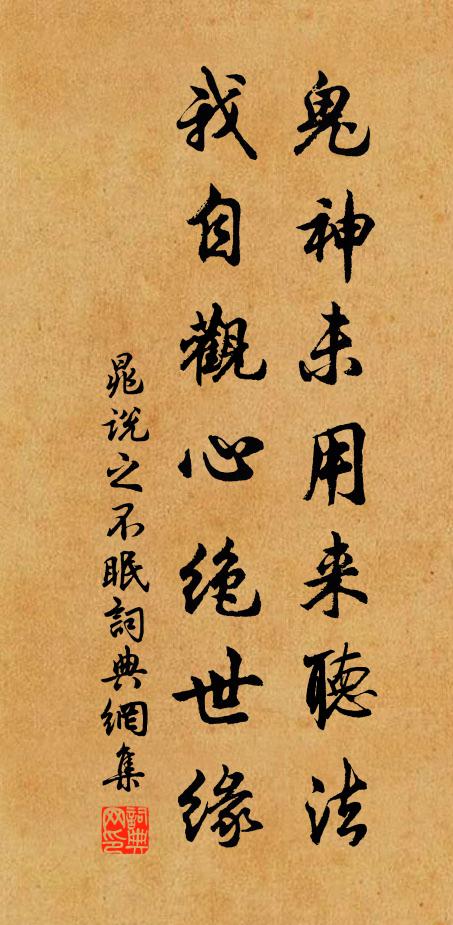 鬼神未用来聽法
我自觀心絶世緣
晁说之不眠詞典網集
詞典网印